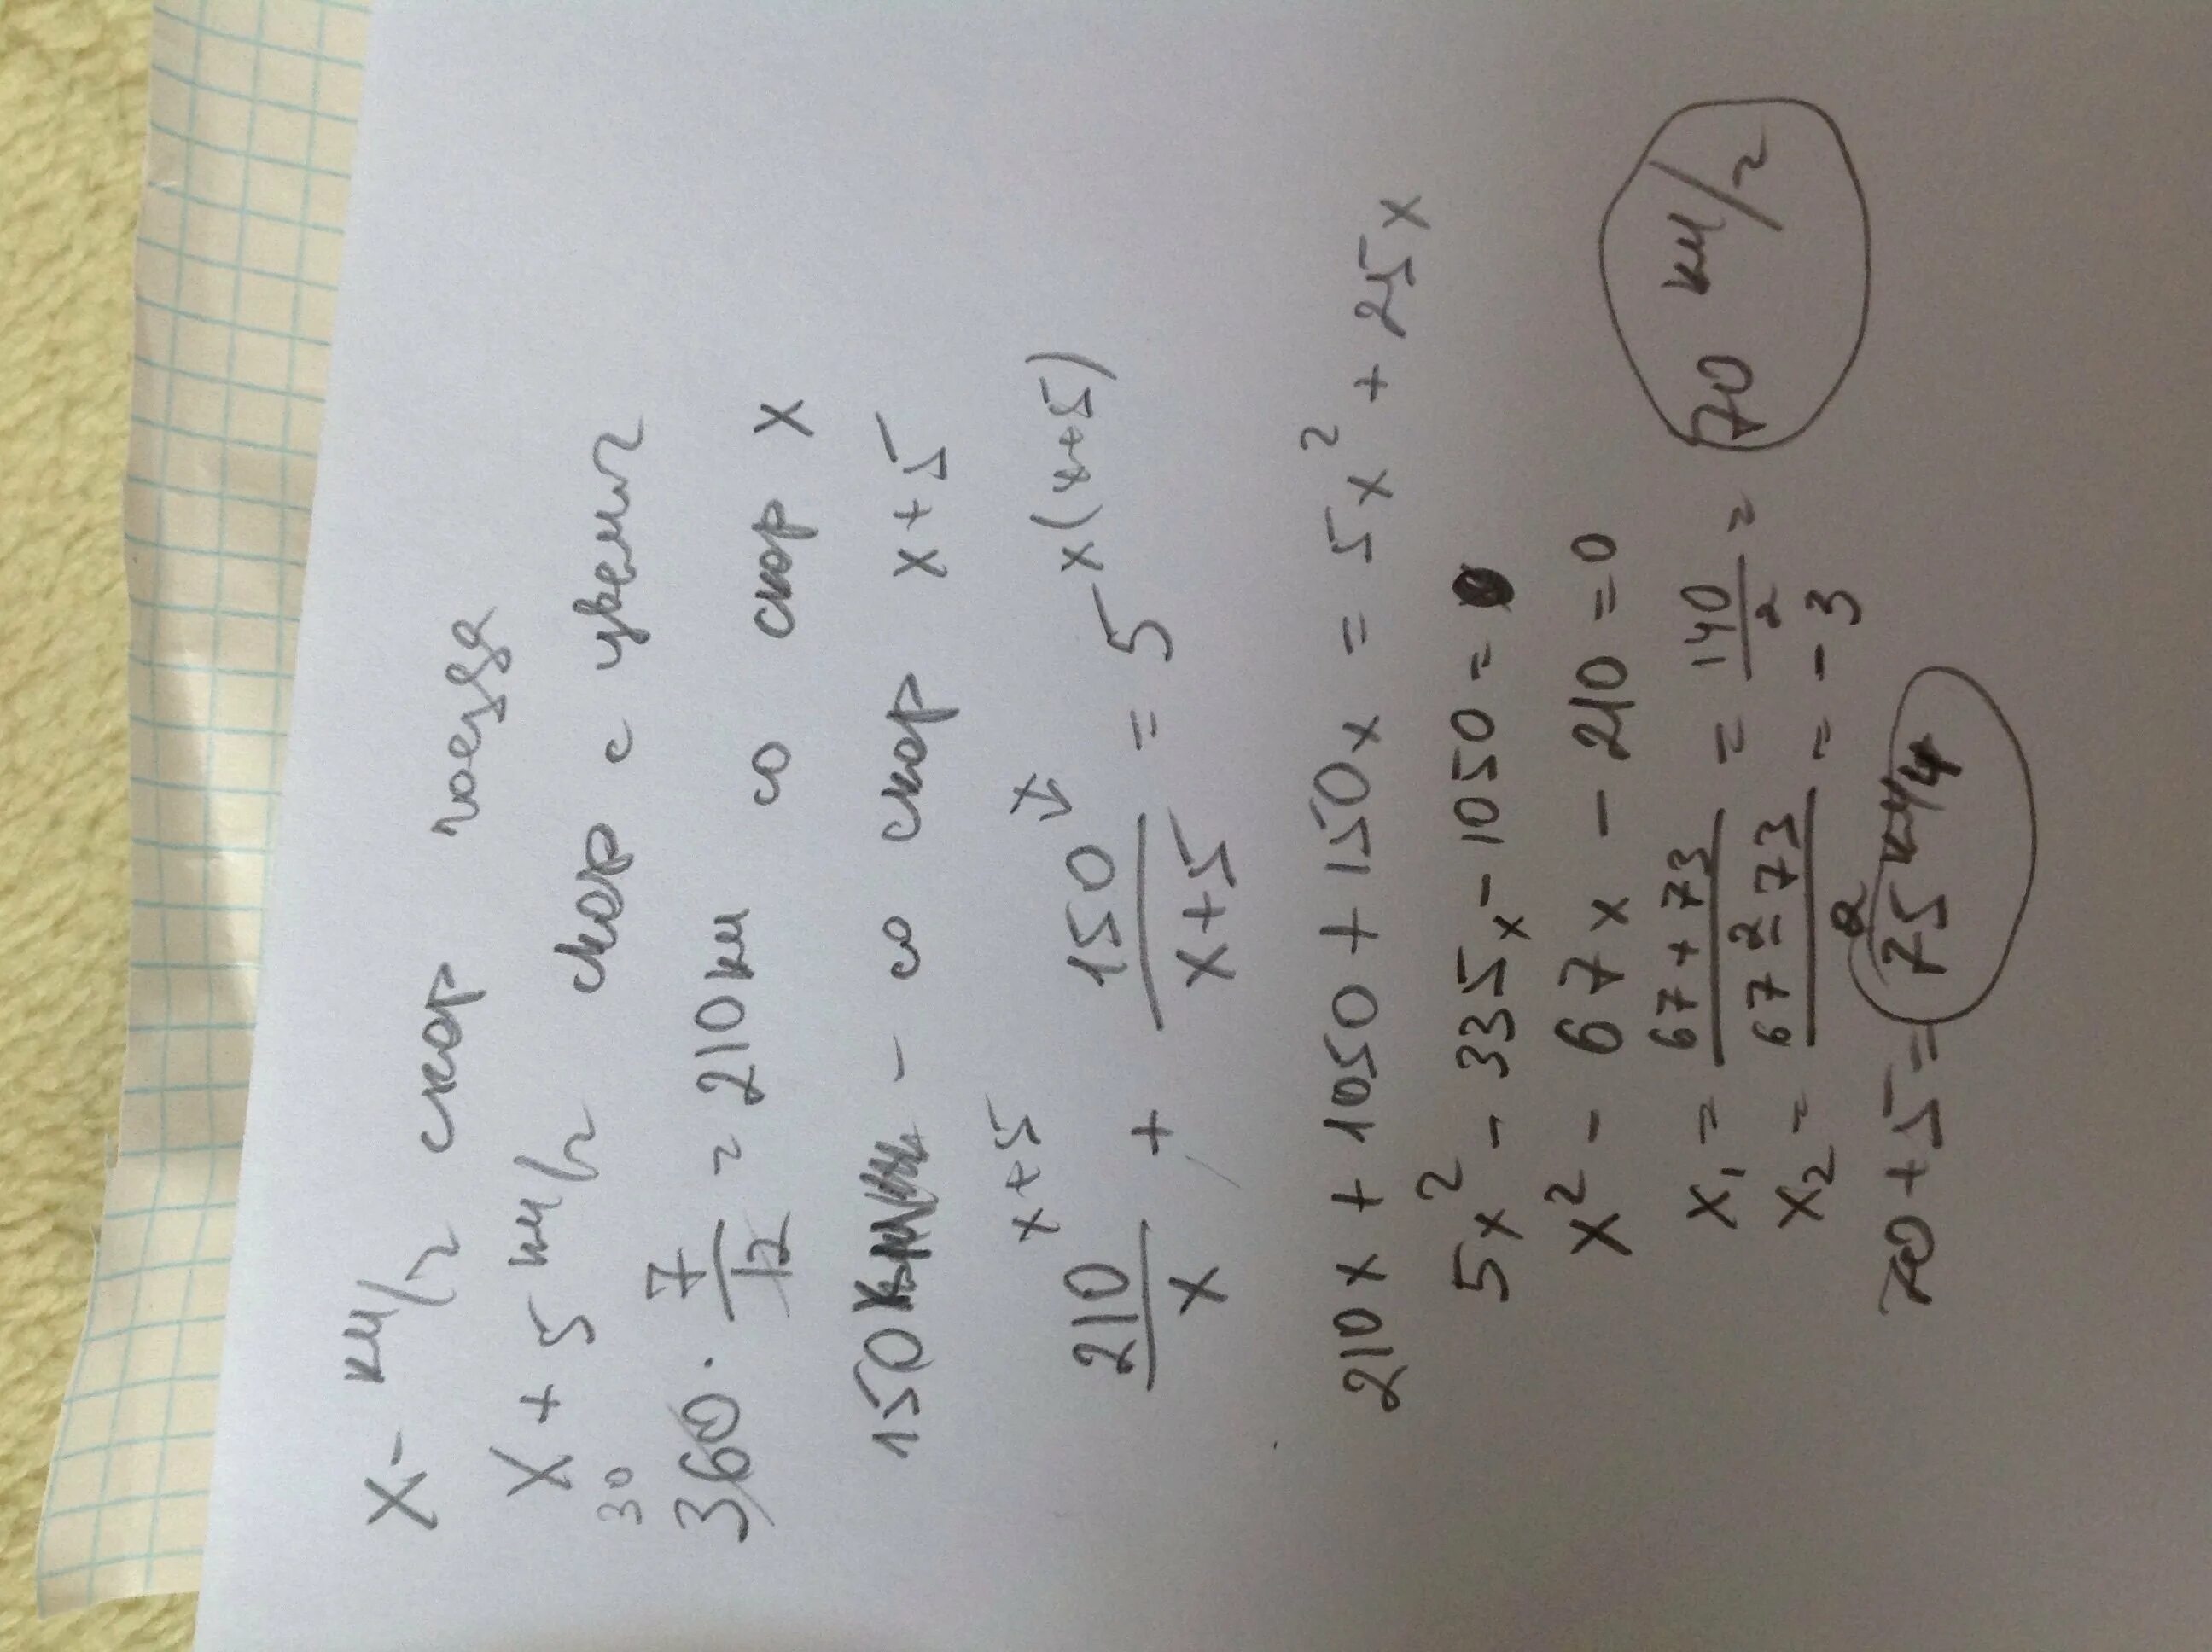 x - км/ч скор поезда
x + 5 км/ч скор с увелич
30
360 · 7/12 = 210 км со скор x
150 - со скор x + 5
x+5 x x(x+5)
210/x + 150/x+5 = 5
210x + 1050 + 150x = 5x² + 25x
5x² - 335x - 1050 = 0
x² - 67x - 210 = 0
x₁ = 67 + 73/2 = 140/2 = 70 км/ч
x₂ = 67 - 73/2 = -3
70 + 5 = 75 км/ч